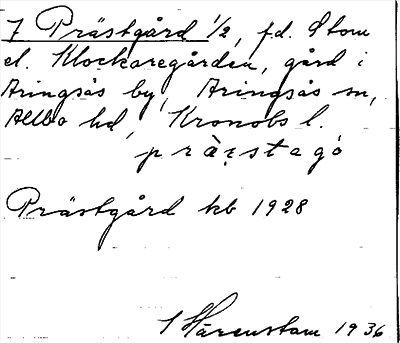 7 Prästgård 1/2, f.d. Stom
el. Klockaregården, gård i
Aringsås by, Aringsås sn,
Allbo hd, Kronobs l.
Prästgård kb 1928
S Härenstam 1936